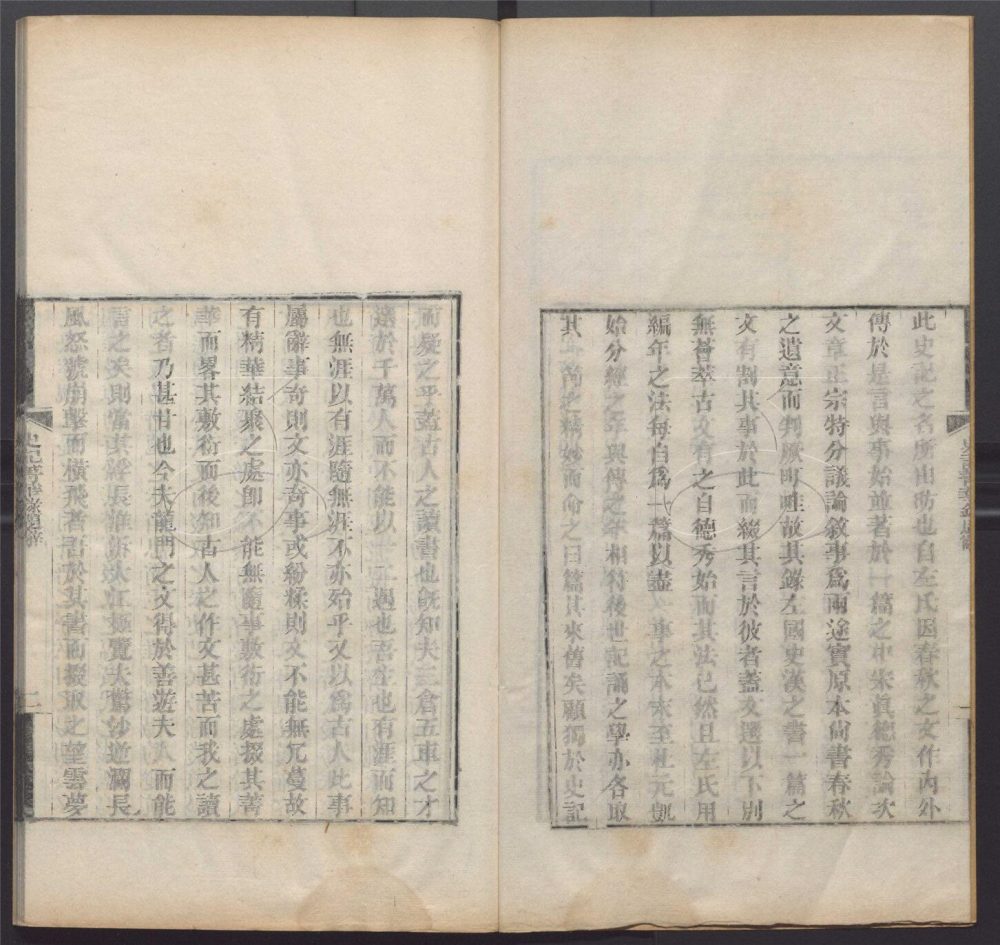 此史記之名所由昉也自左氏因春秋之文作內外
傳於是言與事始並著於一篇之中宋眞德秀論次
文章正宗特分議論敘事爲兩途實原本尙書春秋
之遺意而判厥町畦故其錄左國史漢之書一篇之
文有割其事於此而綴其言於彼者蓋文選以下別
無薈萃古文有之自德秀始而其法已然且左氏用
編年之法每自爲一篇以盡一事之本末至杜元凱
始分經之年與傳之年相符後世記誦之學亦各取
其精妙而命之曰篇其來舊矣顧獨於史記
史記菁華錄題辭
一
而疑之乎蓋古人之讀書也旣知夫三倉五車之才
選於千萬人而不能以一二遇也吾生也有涯而知
也無涯以有涯隨無涯不亦殆乎又以爲古人比事
屬辭事奇則文亦奇事或紛糅則文不能無冗蔓故
有精華結聚之處卽不能無隨事敷衍之處掇其菁
華而畧其敷衍而後知古人之作文甚苦而我之讀
之者乃甚甘也今夫龍門之文得於善遊夫人而能
言之矣則當其浮長淮泝大江極覽夫驚沙逆瀾長
風怒號崩擊而橫飛者吾於其書而掇取之望雲夢
史記菁華錄題辭
二